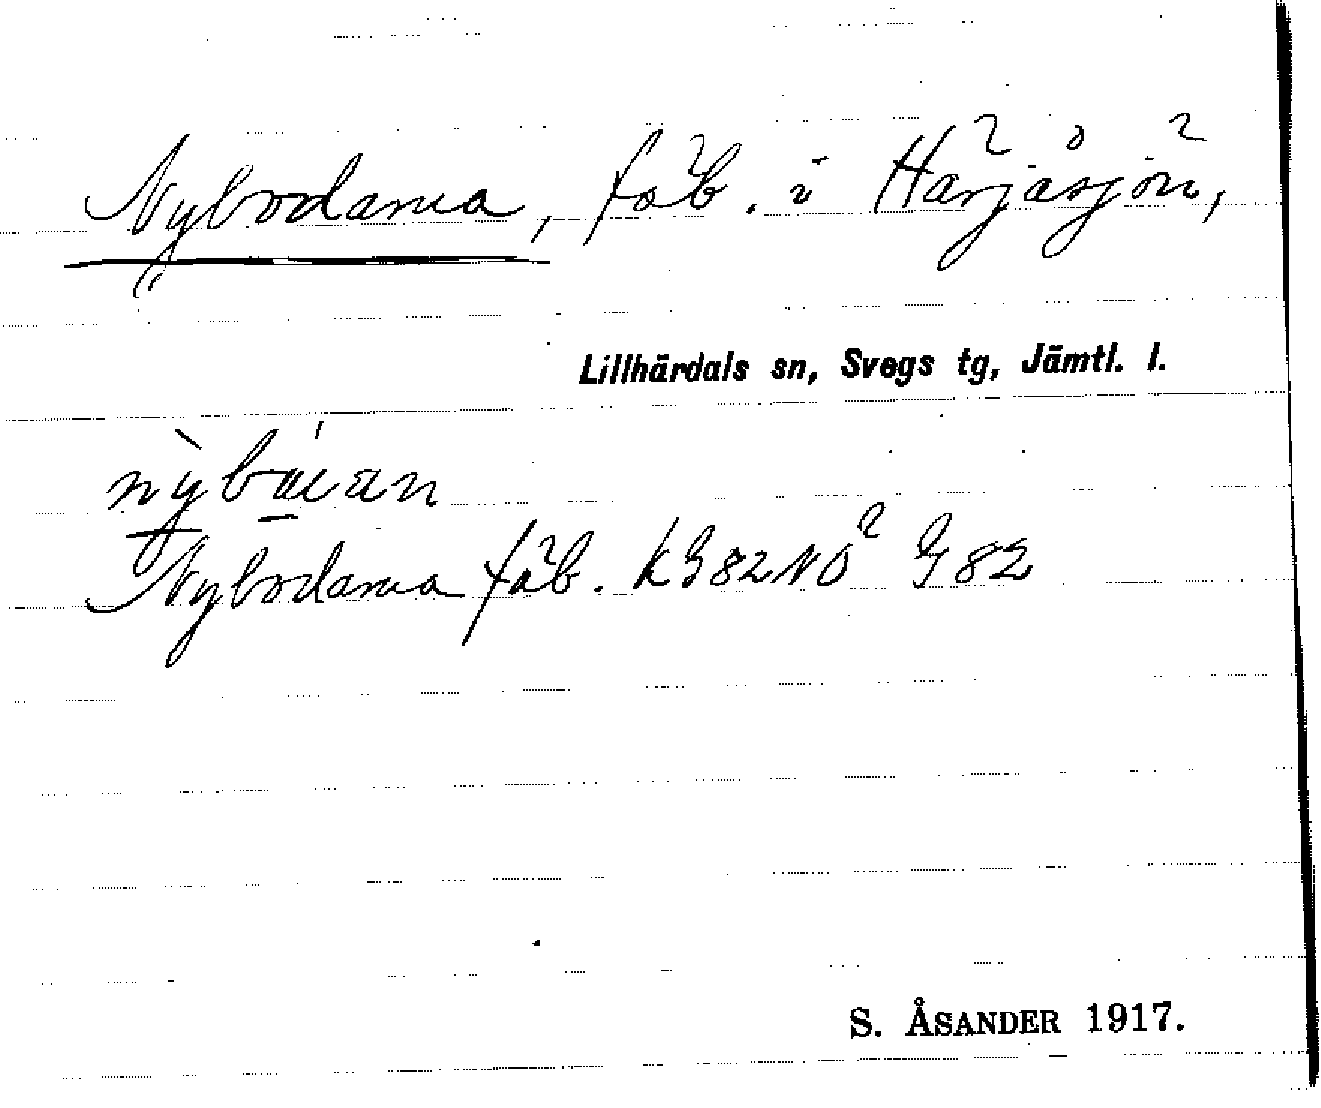 Nybodarna, fäb. i Härjåsjön,
Lillhärdals sn, Svegs tg, Jämtl. l.
Nybodarna fäb. k G82NÖ G82
S. ÅSANDER 1917.